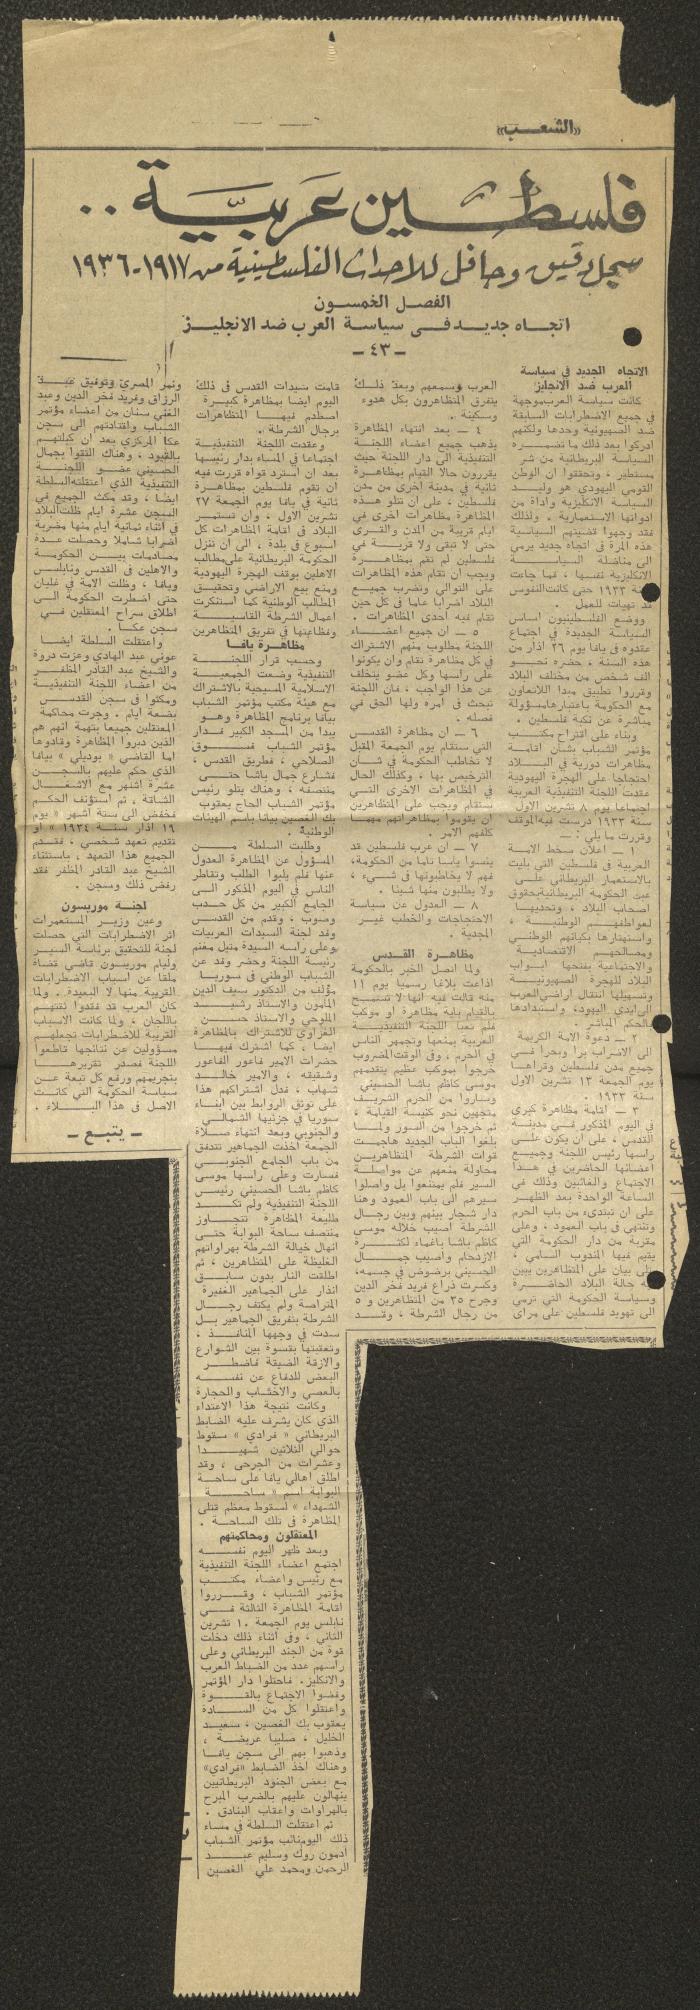 «الشعـــب»
فلسطــين عربيــة ..
سجل دقيق وحافل للاحداث الفلسطينية من ١٩١٧-١٩٣٦
الفصل الخمسون
اتجاه جديد في سياسة العرب ضد الانجليز
- ٤٣ -
الاتجاه الجديد في سياسة
العرب ضد الانجليز
كانت سياسة العرب موجهة
في جميع الاضطرابات السابقة
ضد الصهيونية وحدها ولكنهم
ادركوا بعد ذلك ما تضمـره
السياسة البريطانية من شر
مستطير ، وتحققوا ان الوطن
القومي اليهودي هو وليـــد
السياسة الانكليزية وأداة من
ادواتها الاستعمارية . ولذلك
فقد وجهوا قضيتهم السياسية
هذه المرة في اتجاه جديد يرمي
الى مناضلة السياســـة
الانكليزية نفسها ، فما جاءت
سنة ١٩٣٣ حتى كانت النفوس
قد تهيأت للعمل .
ووضع الفلسطينيون اساس
السياسة الجديدة في اجتماع
عقدوه في يافا يوم ٢٦ اذار من
هذه السنة ، حضره نحـــو
الف شخص من مختلف البلاد
وقرروا تطبيق مبدأ اللاتعاون
مع الحكومة باعتبارها مسؤولة
مباشرة عن نكبة فلسطين .
وبناء على اقتراح مكتـــب
مؤتمر الشباب بشأن اقامـة
مظاهرات دورية في البـــلاد
احتجاجا على الهجرة اليهودية
عقدت اللجنة التنفيذية العربية
اجتماعا يوم ٨ تشرين الاول
سنة ١٩٣٣ درست فيه الموقف
وقررت ما يلي : —
١ - اعلان سخط الامـــة
العربية في فلسطين التي بليت
بالاستعمار البريطاني علـى
عبث الحكومة البريطانية بحقوق
اصحاب البلاد ، وتحديهـــا
لعواطفهـــم الوطنيـة ،
واستهتارها بكيانهم الوطنـي
ومصالحهـــم الاقتصاديـــة
والاجتماعية بفتحها ابــواب
البلاد للهجرة الصهيونيـــة
وتسهيلها انتقال اراضي العرب
الى ايدي اليهود، واستبدادها
بالحكم المباشر .
٢ - دعوة الامة الكريمة
الى الاضراب برا وبحرا فــي
جميع مدن فلسطين وقراهـا
يوم الجمعة ١٣ تشرين الاول
سنة ١٩٣٣ .
٣ - اقامة مظاهرة كبرى
في اليوم المذكور في مدينــة
القدس ، على ان يكون علــى
راسها رئيس اللجنة وجميـع
اعضائها الحاضرين في هــذا
الاجتماع والغائبين وذلك في
الساعة الواحدة بعد الظهـر
على ان تبتدىء من باب الحرم
وتنتهي في باب العمود ، وعلى
مقربة من دار الحكومة التي
يقيم فيها المندوب السامي ،
يلقى بيان على المتظاهرين يبين
حالة البلاد الحاضـــرة
وسياسة الحكومة التي ترمي
الى تهويد فلسطين على مرأى
العرب وسمعهم وبعد ذلــك
يتفرق المتظاهرون بكل هدوء
وسكينة .
٤ - بعد انتهاء المظاهرة
يذهب جميع اعضاء اللجنــة
التنفيذية الى دار اللجنة حيث
يقررون حالا القيام بمظاهـرة
ثانية في مدينة اخرى من مدن
فلسطين ، على ان تتلو هــذه
المظاهرة مظاهرات اخرى في
ايام قريبة من المدن والقــرى
حتى لا تبقى ولا قريـــة في
فلسطين لم تقم بمظاهــرة
ويجب ان تقام هذه المظاهرات
على التوالي وتضرب جميــع
البلاد اضرابا عاما في كل حين
تقام فيه احدى المظاهرات .
٥ - ان جميع اعضــــاء
اللجنة مطلوب منهم الاشتراك
في كل مظاهرة تقام وان يكونوا
على راسها وكل عضو يتخلف
عن هذا الواجب ، فان اللجنة
تبحث في أمره ولها الحق في
فصله .
٦ - ان مظاهرة القدس
التي ستقام يوم الجمعة المقبل
لا تخاطب الحكومة في شــأن
الترخيص بها ، وكذلك الحال
في المظاهرات الاخرى التـي
ستقام ويجب على المتظاهرين
ان يقوموا بمظاهراتهم مهمــا
كلفهم الامر .
٧ - ان عرب فلسطين قد
يئسوا ياسا تاما من الحكومة،
فهم لا يخاطبونها في شيء ،
ولا يطلبون منها شيئا .
٨ - العدول عن سياسة
الاحتجاجات والخطب غيــر
المجدية .
مظاهـــرة القدس
ولما اتصل الخبر بالحكومة
اذاعت بلاغا رسميا يوم ١١
منه قالت فيه انها لا تسمـح
بالقيام باية مظاهرة او موكب
فلم تعبأ اللجنة التنفيذيــة
العربية بمنعها وتجمهر الناس
في الحرم ، وفي الوقت المضروب
خرجوا بموكب عظيم يتقدمهم
موسى كاظم باشا الحسيني
وساروا من الحرم الشريـف
متجهين نحو كنيسة القيامة ،
ثم خرجوا من السور ولمــا
بلغوا الباب الجديد هاجمـت
قوات الشرطة المتظاهريــن
محاولة منعهم عن مواصلـة
السير فلم يمتنعوا بل واصلوا
سيرهم الى باب العمود وهنا
دار شجار بينهم وبين رجـال
الشرطة أصيب خلاله موسى
كاظم باشا باغماء لكثــــرة
الازدحام وأصيب جمـــال
الحسيني برضوض في جسمه،
وكسرت ذراع فريد فخر الدين
وجرح ٣٥ من المتظاهرين و ٥
من رجال الشرطة ، وقـــد
قامت سيدات القدس في ذلك
اليوم ايضا بمظاهرة كبيـرة
اصطدم فيهـــا المتظاهرات
برجال الشرطة .
وعقدت اللجنة التنفيذيـة
اجتماعا في المساء بدار رئيسها
بعد ان استرد قواه قررت فيه
ان تقوم فلسطين بمظاهـرة
ثانية في يافا يوم الجمعة ٢٧
تشرين الاول ، وان تستمـر
البلاد في اقامة المظاهرات كل
اسبوع في بلدة ، الى ان تنزل
الحكومة البريطانية على مطالب
الاهلين بوقف الهجرة اليهودية
ومنع بيع الاراضي وتحقيــق
المطالب الوطنية كما استنكرت
أعمال الشرطة القاسيـــة
وفظاعتها في تفريق المتظاهرين
مظاهـرة يافـا
وحسب قرار اللجنـــة
التنفيذية وضعت الجمعيــة
الاسلامية المسيحية بالاشتراك
مع هيئة مكتب مؤتمر الشباب
بيافا برنامج المظاهرة وهــو
يبدأ من المسجد الكبير فــدار
مؤتمر الشباب فســـوق
الصلاحي ، فطريق القدس ،
فشارع جمال باشا حتـــى
منتصفه ، وهناك يتلو رئيس
مؤتمر الشباب الحاج يعقوب
بك الغصين بيانا باسم الهيئات
الوطنية .
وطلبت السلطة مــــن
المسؤول عن المظاهرة العدول
عنها فلم يلبوا الطلب وتقاطر
الناس في اليوم المذكور الـى
الجامع الكبير من كل حـدب
وصوب ، وقدم من القدســـ
وفد لجنة السيدات العربيات
وعلى رأسه السيدة متيل مغنم
رئيسة اللجنة وحضر وفد عن
الشباب الوطني في سوريــا
مؤلف من الدكتور سيف الدين
المأمون والاستاذ رشيــــد
الملوحي والاستاذ حســـن
الغزاوي للاشتراك بالمظاهرة
ايضا ، كما اشترك فيهـــا
حضرات الامير فاعور الفاعور
وشقيقه ، والامير خالـــد
شهاب ، فدل اشتراكهم هذا
على توثق الروابط بين ابنـاء
سوريا في جزئيها الشمالـي
والجنوبي وبعد انتهاء صــلاة
الجمعة أخذت الجماهير تتدفق
من باب الجامع الجنوبـــي
فسارت وعلى راسها موسى
كاظم باشا الحسيني رئيــس
اللجنة التنفيذية ولم تكـــد
طليعة المظاهرة تتجـــاوز
منتصف ساحة البوابة حتـى
انهال خيالة الشرطة بهراواتهم
الغليظة على المتظاهرين ، ثم
اطلقت النار بدون سابــق
انذار على الجماهير الغفيرة
المتراصة ولم يكتف رجــال
الشرطة بتفريق الجماهير بـل
سدت في وجهها المنافــذ ،
وتعقبتها بقسوة بين الشوارع
والازقة الضيقة فاضطـــر
البعض للدفاع عن نفســـه
بالعصي والاخشاب والحجارة
وكانت نتيجة هذا الاعتداء
الذي كان يشرف عليه الضابط
البريطاني « فرادي » سقوط
حوالي الثلاثين شهيــــدا
وعشرات من الجرحى ، وقد
اطلق اهالي يافا على ساحـة
البوابة اسم « ساحـــة
الشهداء » لسقوط معظم قتلى
المظاهرة في تلك الساحـة .
المعتقلون ومحاكمتهم
وبعد ظهر اليوم نفســـه
اجتمع اعضاء اللجنة التنفيذية
مع رئيس واعضاء مكتــب
مؤتمر الشباب ، وقــــرروا
اقامة المظاهرة الثالثة فـــي
نابلس يوم الجمعة ١٠ تشرين
الثاني ، وفي أثناء ذلك دخلت
قوة من الجند البريطاني وعلى
رأسهم عدد من الضباط العرب
والانكليز. فاحتلوا دار المؤتمر
وفضوا الاجتماع بالقـــوة
واعتقلوا كل من الســـادة
يعقوب بك الغصين ، سعيــد
الخليل ، صليبا عريضة ،
وذهبوا بهم الى سجن يافــا
وهناك اخذ الضابط «فرادي»
مع بعض الجنود البريطانيين
ينهالون عليهم بالضرب المبرح
بالهراوات واعقاب البنادق .
ثم اعتقلت السلطة في مساء
ذلك اليوم نائب مؤتمر الشباب
ادمون روك وسليم عبـــد
الرحمن ومحمد علي الغصين
ونمر المصري وتوفيق عبـــد
الرزاق وفريد فخر الدين وعبد
الغني سنان من أعضاء مؤتمر
الشباب واقتادتهم الى سجن
عكا المركزي بعد ان كبلتهم
بالقيود ، وهناك التقوا بجمال
الحسيني عضـــو اللجنـــة
التنفيذية الذي اعتقلته السلطة
ايضا ، وقد مكث الجميع في
السجن عشرة ايام ظلت البلاد
في أثناء ثمانية ايام منها مضربة
اضرابا شاملا وحصلت عــدة
مصادمات بيـــن الحكومـة
والاهلين في القدس ونابلـس
ويافا ، وظلت الامة في غليان
حتى اضطرت الحكومة الــى
اطلاق سراح المعتقلين فـــي
سجن عكـــا .
واعتقلت السلطة ايضــا
عوني عبد الهادي وعزت دروزة
والشيخ عبد القادر المظفــر
من اعضاء اللجنة التنفيذيـة
ومكثوا في سجن القدســـ
بضعة ايام . وجرت محاكمة
المعتقلين جميعا بتهمة انهم هم
الذين دبروا المظاهرة وقادوها
اما القاضي « بوديلي » بيافا
الذي حكم عليهم بالسجــن
عشرة أشهر مع الاشغــال
الشاقة ، ثم استؤنف الحكـم
فخفض الى ستة أشهر « يوم
١٦ اذار سنــة ١٩٣٤ » او
تقديم تعهد شخصي ، فقــدم
الجميع هذا التعهد ، باستثناء
الشيخ عبد القادر المظفر فقد
رفض ذلك وسجن .
لجنــة موريسون
وعين وزيـــر المستعمرات
اثر الاضطرابات التي حصلت
لجنة للتحقيق برئاسة السيـر
وليام موريسون قاضي قضاة
ملقا عن أسباب الاضطرابات
القريبة منها لا البعيدة . ولما
كان العرب قد فقدوا ثقتهـم
باللجان ، ولما كانت الاسباب
القريبة للاضطرابات تجعلهـم
مسؤولين عن نتائجها قاطعوا
اللجنة فصدر تقريرهـــا
بتجريمهم ورفع كل تبعة عــن
سياسة الحكومة التي كانــت
الاصل في هذا البــــلاء .
- يتبع -